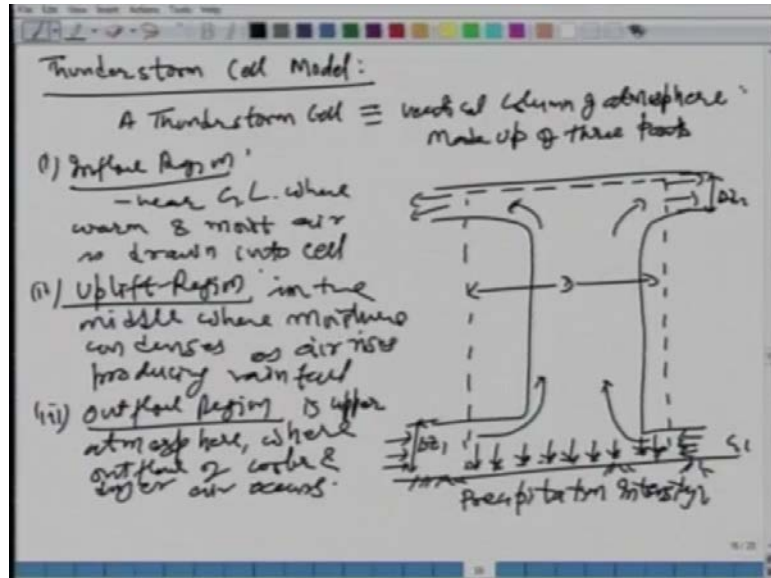 Thunderstorm Cell Model:
A Thunderstorm Cell ≡ vertical column of atmosphere
made up of three parts
(i) Inflow Region
- near G.L. where
warm & moist air
is drawn into cell
(ii) Uplift Region in the
middle where moisture
condenses as air rises
producing rainfall
(iii) Outflow Region is upper
atmosphere, where
outflow of cooler &
dryer air occurs.
ΔZ2
D
ΔZ1
GL
Precipitation Intensity